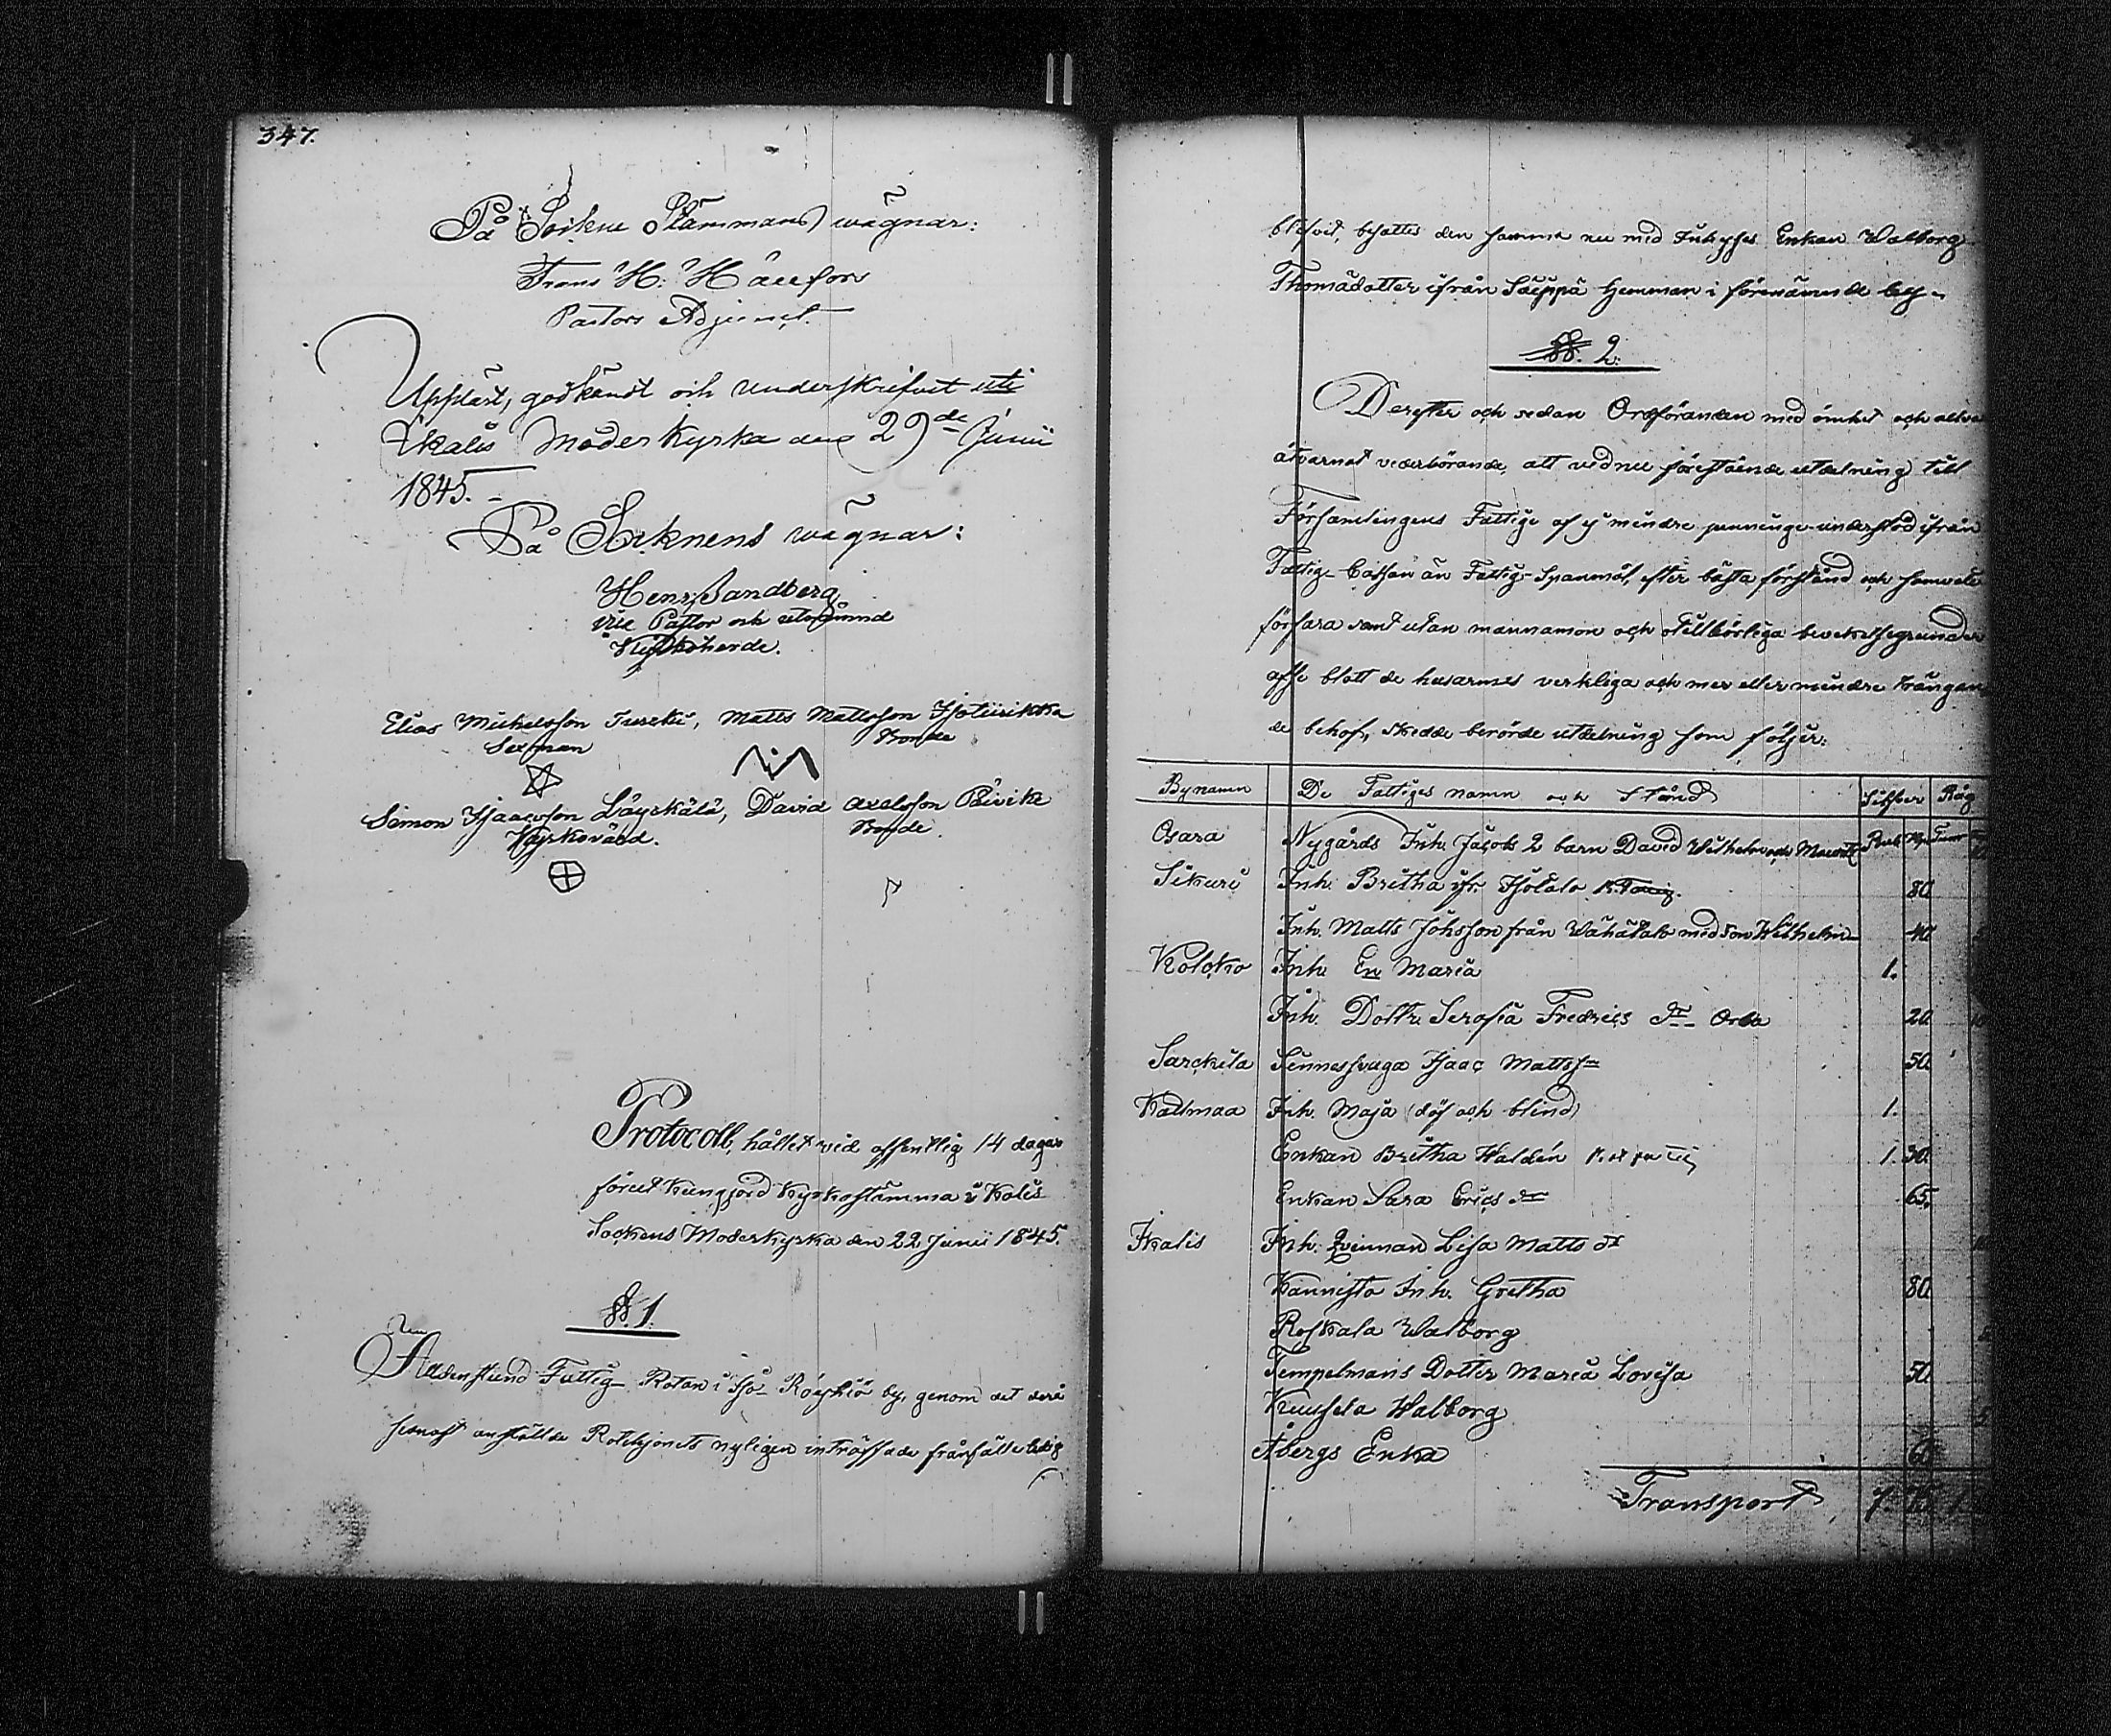 347.
På Sockne Stämmans wägnar:
Frans H. Häufors
Pastors Adjunct.
Uppläst, godkändt och underskrifvit uti
Ikalis Moderkyrka den 29de Junii
1845.
På Socknens wägnar:
Henr. Sandberg
vice Pastor och utnämnd
Kyrkoherde.
Elias Michelsson Turcku, Matts Mattsson
Sexman Bonde
Simon Isaacsson Läyckälä, David Axelsson Päivike
Kyrkovärd. Bonde.
Protocoll, hållet vid offentlig 14 dagar
förut kungjord Kyrkostämma i Ikalis
Sockens Moderkyrka den 22 Junii 1845.
§§. 1.
Alldenstund Fattig-Rotan i Röyhiö by, genom det derå
senast anstälde Rotehjonets nyligen inträffade frånfälle ledig
blifvit, besattes den samma nu med Enkan Walborg
Thomädotter ifrån Säippä Hemman i förenämnde by.
§§. 2.
Derefter och sedan Ordföranden med ömhet och
åtvarnat vederbörande, att vid nu förestående utdelning till
Församlingens Fattige af ej mindre penninge-understöd ifrån
Fattig-Cassan än Fattig-Spanmål, efter bästa förstånd och samvete
förfara samt utan mannamon och otillbörliga bevekelsegrunder
afse blott de husarmes verkliga och mer eller mindre trängan
de behof, skedde berörde utdelning som följer:
Bynamn De Fattiges namn och stånd Silfver Råg
Osara Nygårds Inh. Jacobs 2 barn David Wilhelm och Rub
Sikuri Inh. Britha ifr. 80
Inh. Matts Johsson från Wähätalo med son Wilhelm 40
Kolcko Inh. En Maria 1.
Inh. Dottr. Serafia Fredrics dr 20
Sarckila Sinnessvaga Isaac Mattsson 50
Kallmaa Inh. Maja (döf och blind) 1.
Enkan Britha Waldén 1. 30
Enkan Sara Erics dr 65.
Ikalis Inh. Qvinnan Lisa Matts dr
Kannisto Inh. Gretha 80
Roskala Walborg
Tempelmans Dotter Maria Lovisa 50
Kuusela Walborg
Åbergs Enka
Transport 7.